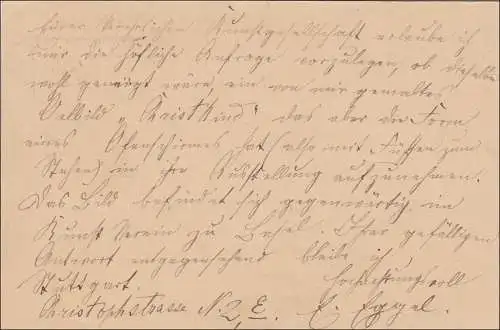 Eurer verehrlichen Kunstgesellschaft erlaube ich
mir die höfliche Anfrage vorzulegen, ob dieselbe
wohl geneigt wäre, ein von mir gemaltes
Oelbild „Christkind" das aber die Form
eines Ofenschirmes hat (also mit Füssen zum
Stehen) in ihre Ausstellung aufzunehmen.
Das Bild befindet sich gegenwärtig im
Kunst Verein zu Basel. Ihrer gefälligen
Antwort entgegensehend bleibe ich
Stuttgart. hochachtungsvoll
Christophstrasse N. 2, E. E.